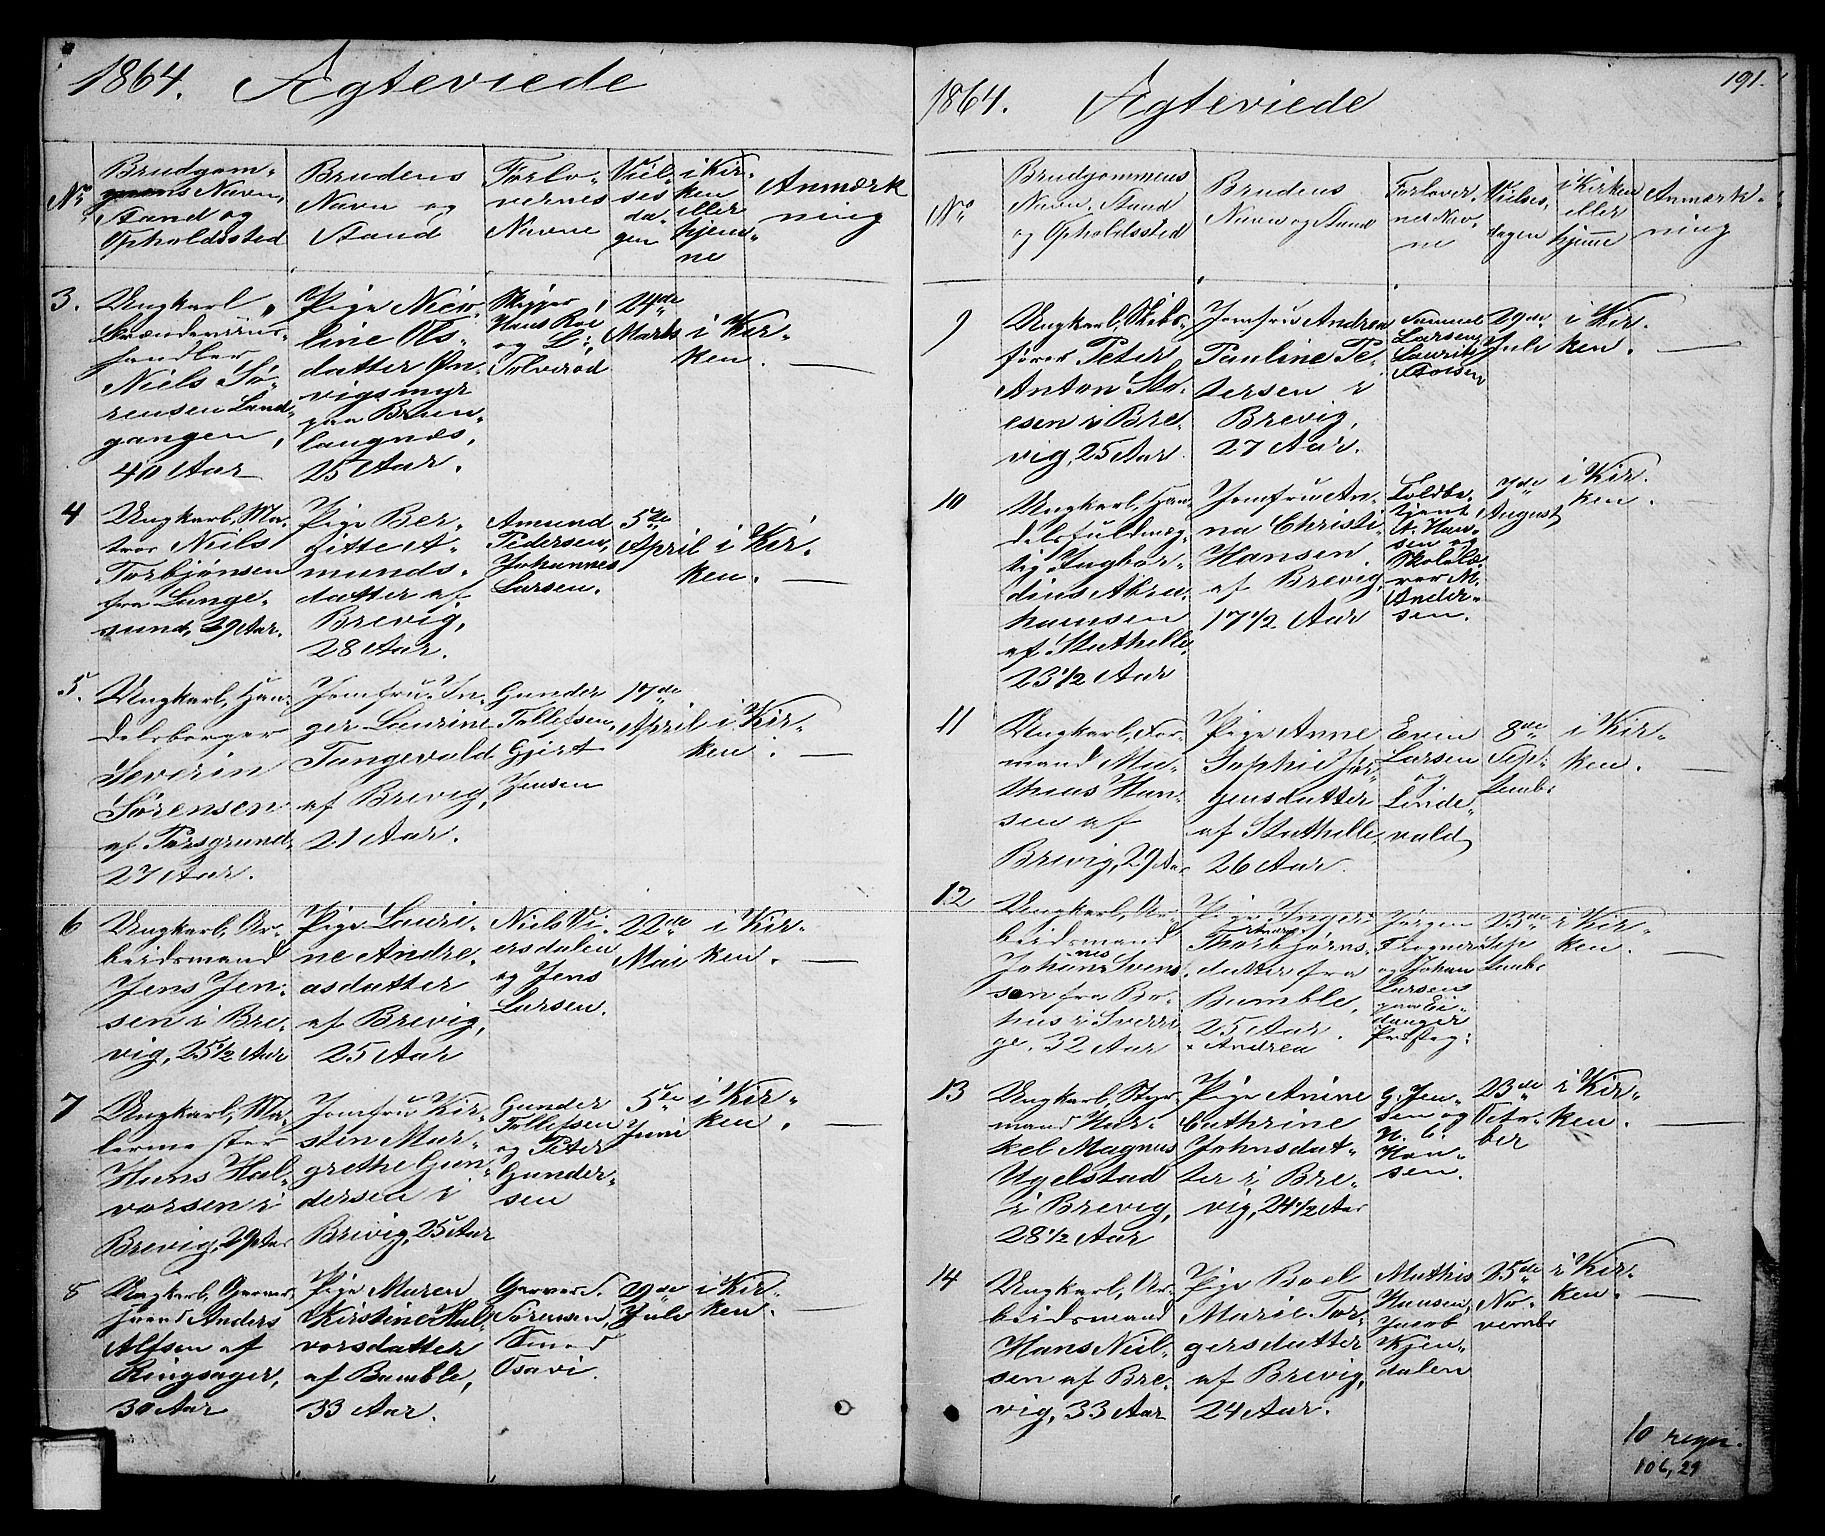 1864. Ægteviede
No
Brudgom-
mens Navn,
Stand og
Opholdssted
Brudens
Navn og
Stand
Forlo-
vernes
Navne
Viel-
ses
da-
gen
i Kir-
ken
eller
hjem-
me
Anmærk
ning
3.
Ungkarl,
Brændeviins-
handler
Niels Sø-
rensen Land-
gangen,
40 Aar
Pige Nico-
line Ols-
datter Øn-
vigsmyr
paa Brun-
langnæs,
25 Aar.
Skipper
Hans Roe
og L:
Tolverød
24de
Marts
i Kir-
ken.
—
4
Ungkarl, Ma-
tros Niels
Torbjønsen
fra Lange-
sund, 29 Aar.
Pige Ber-
gitte A-
munds-
datter af
Brevig,
28 Aar.
Amund
Pedersen,
Johannes
Larsen.
5te
April
i Kir-
ken.
—
5.
Ungkarl, Han-
delsborger
Severin
Sørensen
af Porsgrund,
27 Aar.
Jomfru In-
ger Laurine
Tangevald
af Brevig,
21 Aar.
Gunder
Tollefsen,
Gjert
Jensen
17de
April
i Kir-
ken.
—
6
Ungkarl, Ar-
beidsmand
Jens Jen-
sen i Bre-
vig, 25 1/2 Aar
Pige Lauri-
ne Andre-
asdatter
af Brevig,
25 Aar
Niels Vi-
ersdalen
og Jens
Larsen.
22de
Mai
i Kir-
ken.
—
7
Ungkarl, Ma-
lermester
Hans Hal-
vorsen i
Brevig, 29 Aar
Jomfru Kir-
stin Mar-
grethe Gun-
dersen i
Brevig, 25 Aar
Gunder
Tollefsen
og Peter
Gunder-
sen
5te
Juni
i Kir-
ken.
—
8
Ungkarl, Garver-
svend Anders
Alfsen af
Ringsager,
30 Aar
Pige Maren
Kirstine Hal-
vorsdatter
af Bamble,
33 Aar.
Garver S.
Sørensen,
Smed
Osavi.
29de
Juli
i Kir-
ken.
—
1864. Ægteviede
191.
No
Brudgommens
Navn, Stand
og Opholdssted
Brudens
Navn og Stand
Forlover-
nes Nav-
ne
Vielses-
dagen
i Kirken
eller
hjemme
Anmærk-
ning
9
Ungkarl, Skibs-
fører Peter
Anton Sto-
esen i Bre-
vig, 25 Aar.
Jomfru Andrea
Pauline Pe-
tersen i
Brevig,
27 Aar.
Samuel
Larsen,
Laurits
Stoesen
29de
Juli
i Kir-
ken.
—
10
Ungkarl, Han-
delsfuldmæg-
tig Ingbor-
dius Abra-
hamsen
af Stathelle,
23 1/2 Aar
Jomfru An-
na Christi-
Hansen
af Brevig,
17 1/2 Aar
Toldbe-
tjent
A. Han-
sen og
Skolelæ-
rer M.
Ander-
sen.
7de
August
i Kir-
ken.
11
Ungkarl, For-
mand Ma-
thias Han-
sen af
Brevig, 29 Aar
Pige Anne
Sophie Jør-
gensdatter
af Stathelle,
26 Aar.
Even
Larsen
Linde-
vald
8de
Sep-
tembr
i Kir-
ken.
—
12
Ungkarl, Ar-
beidsmand
Johannes Svens
sen fra Bo-
hus i Sverri-
ge. 32 Aar
Pige Inger
Andrea
Thorbjørns-
datter fra
Bamble,
25 Aar.
× Andrea
Jørgen
Frogner
og Johan
Larsens
paa Ei-
danger
Præsteg:
23de
Sep
tembr
i Kir-
ken.
—
13
Ungkarl, Styr-
mand Har-
kel Magnus
Ugelstad
i Brevig,
28 1/2 Aar
Pige Anine
Cathrine
Johnsdat-
ter i Bre-
vig, 24 1/2 Aar
G. Jen-
sen og
N. C.
Han-
sen.
23de
Octo-
ber
i Kir-
ken.
—
14
Ungkarl, Ar-
beidsmand
Hans Neil-
sen af Bre-
vig, 33 Aar
Pige Boel
Marie Tor-
gersdatter
af Brevig,
24 Aar.
Mathis
Hansen,
Jacob
Kjen-
dalen
25de
No-
vembr
i Kir-
ken.
—
10 regn.
106,29